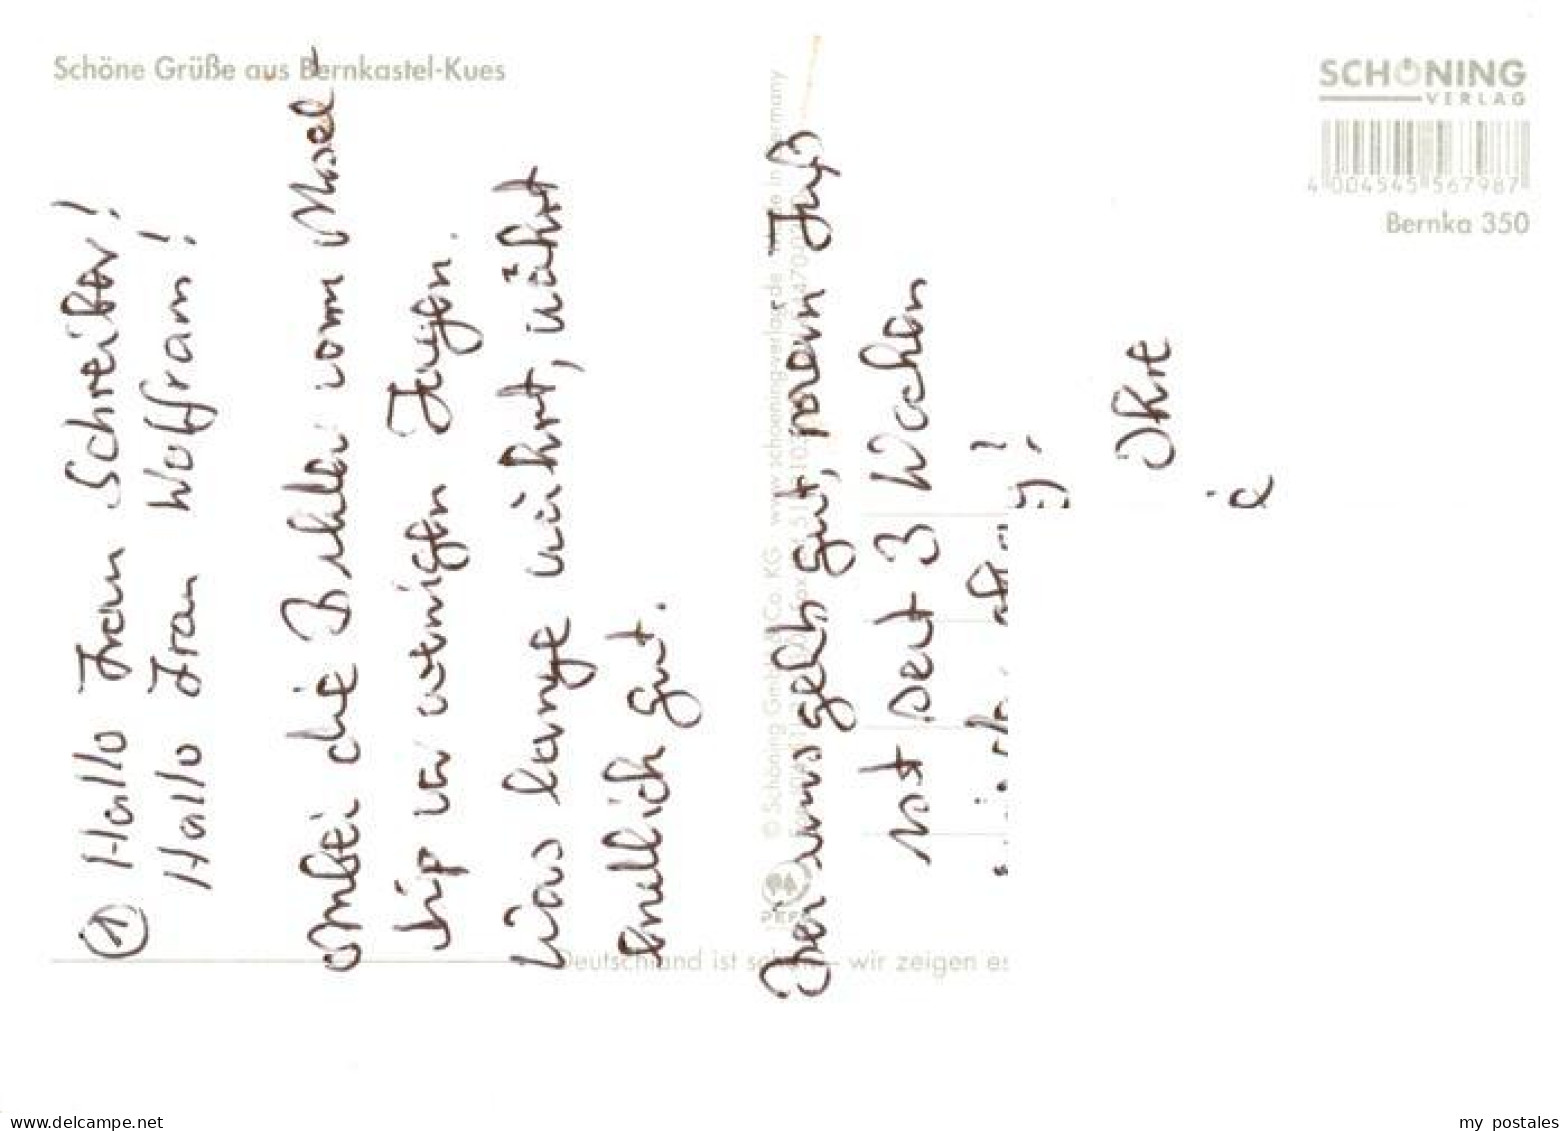 Schöne Grüße aus Bernkastel-Kues
SCHÖNING
VERLAG
4 004545 567987
Bernka 350
① Hallo Frau Schreiber!
Hallo Frau Wolfram!
Anbei die Bilder vom Mosel-
trip vor wenigen Tagen.
Was lange währt, währt
endlich gut.
Hier uns geht gut, mein Fuß
ist seit 3 Wochen
Ihre
© Schöning GmbH & Co. KG www.schoening-verlag.de Made in Germany
PEFC
Deutschland ist schön – wir zeigen es
my postales
www.delcampe.net